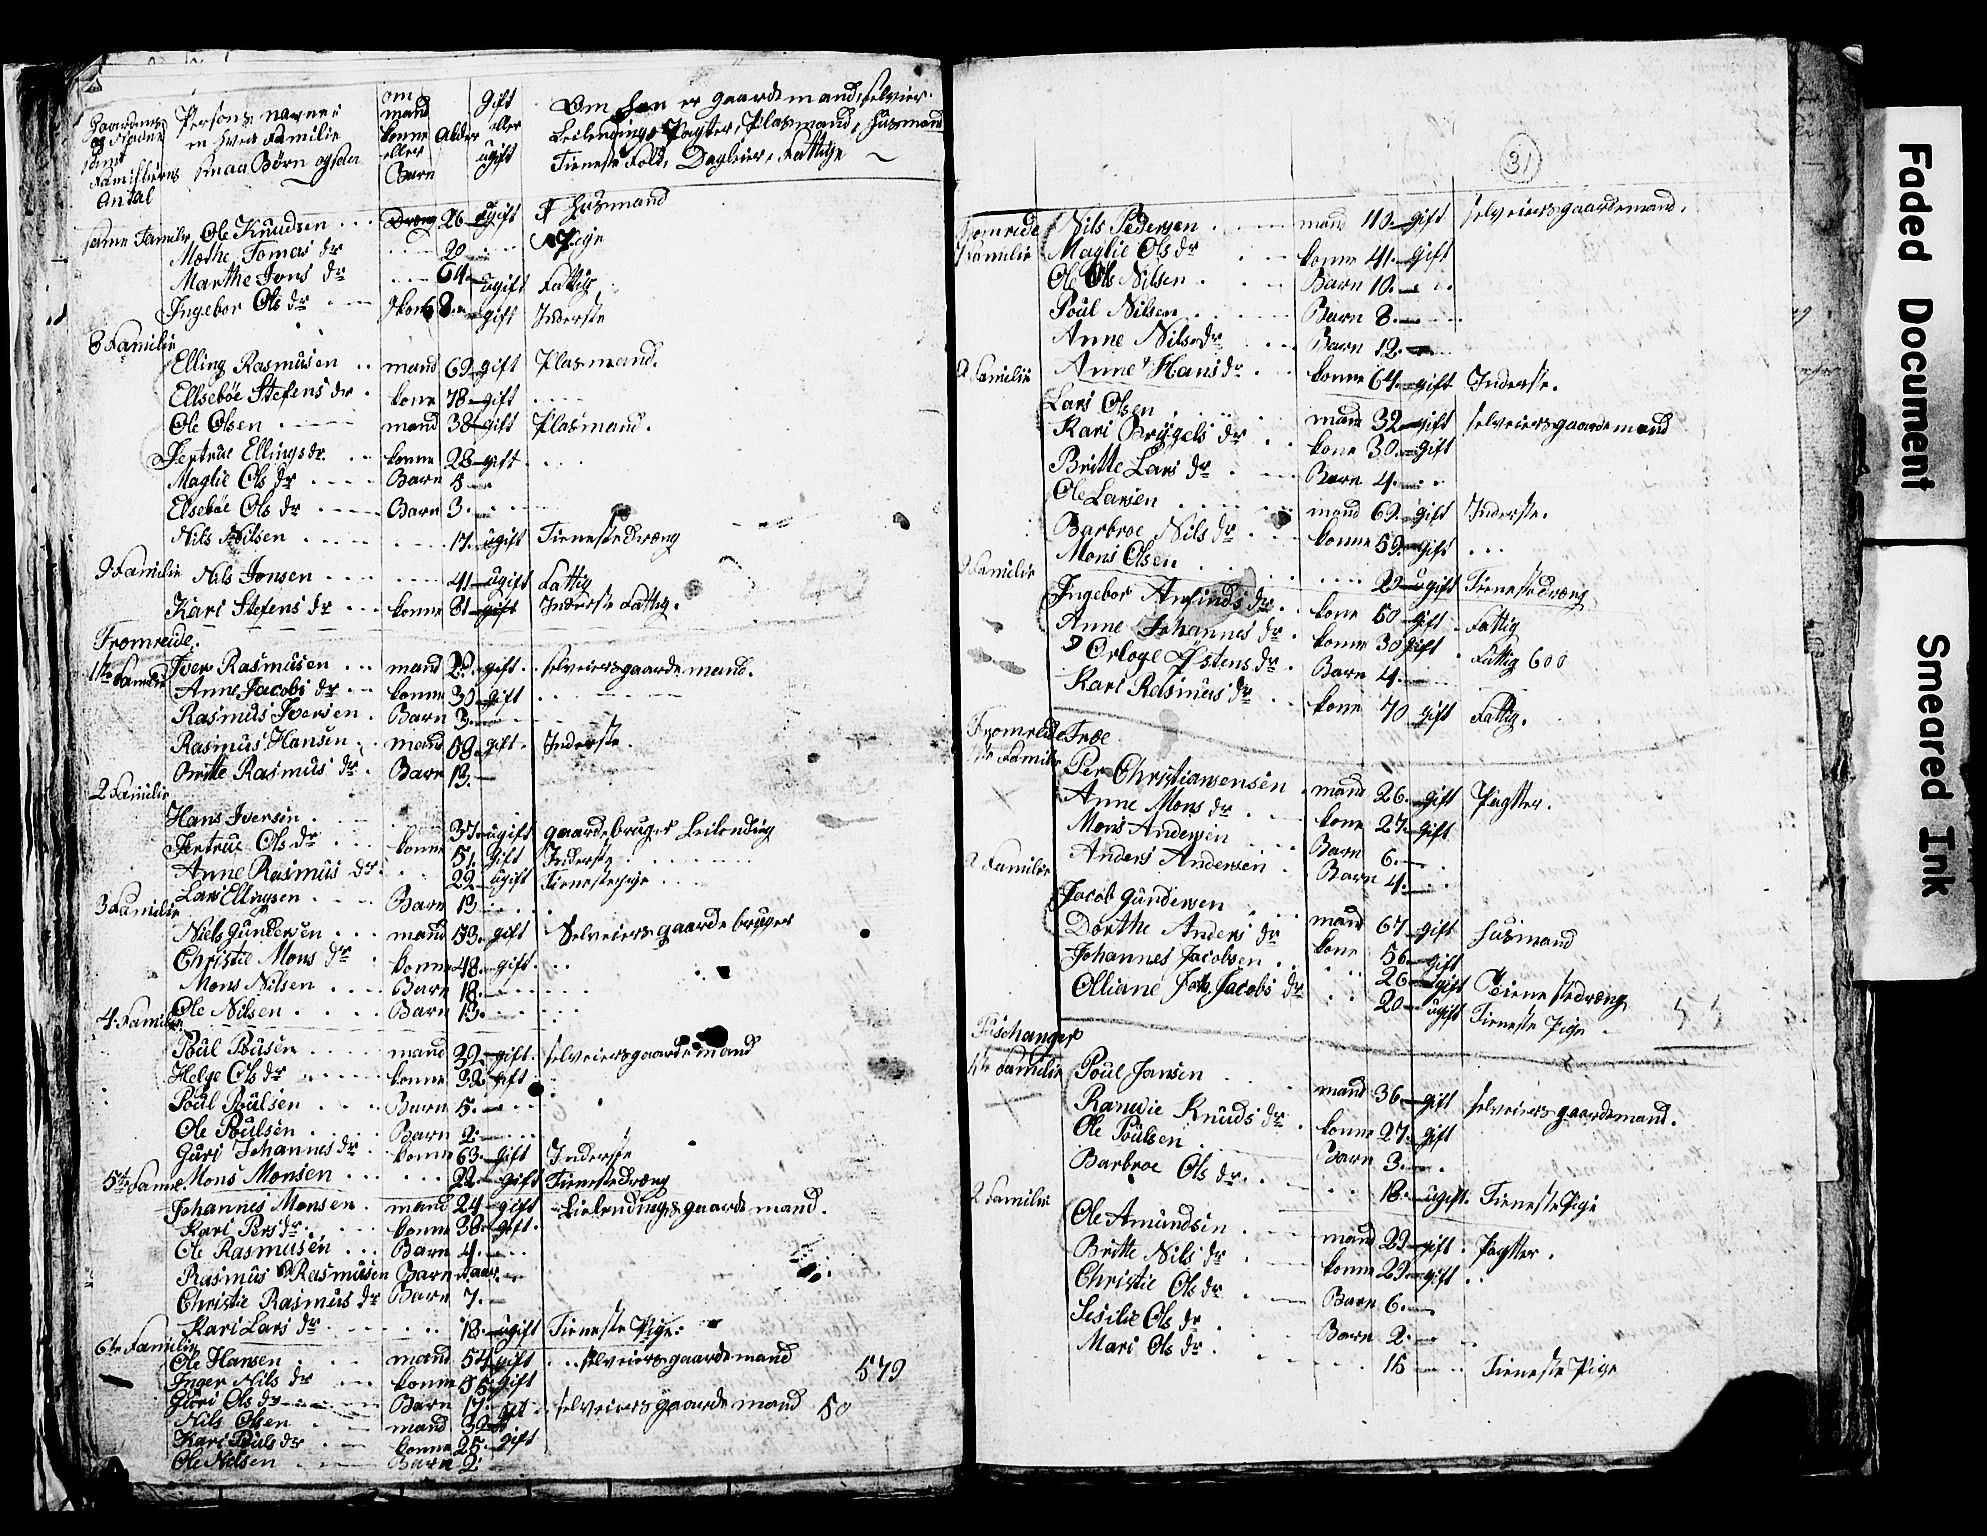 Persons navne i
en hver Familie
smaa Børn og
om
mand
konne
eller
Barn
Alder
Gift
eller
ugift
Om han er gaardemand, selveier
Leilending, Pagter, Plasmand, Husmand
Tieneste Folk, Dagleier, Fattige
Familiens
Antal
same Familie Ole Knudsen 26 ugift Husmand
Mothe Tomas dr 20 Pige
Marthe Jons dr 64 ugift Fattig
Ingebor Ols dr kone 68 gift Inderste
8 Familie
Elling Rasmusen mand 69 gift Plasmand.
Ellseboe Stefens dr kone 78 gift
Ole Olsen mand 38 gift Plasmand.
Jertrue Ellings dr konne 28 gift
Maglie Ols dr Barn 8
Elseboe Ols dr Barn 3
Nils Nilsen 17 ugift Tienestedræng
9 Familie Nils Jonsen 41 ugift Fattig
Kari Stefens dr konne 81 gift Inderste Fattig.
Fromreide.
1te Familie Iver Rasmusen mand 29 gift selveiersgaardemand.
Anne Jacobs dr konne 39 gift
Rasmus Iversen Barn 3
Rasmus Hansen mand 59 gift Inderste.
Britte Rasmus dr Barn 13
2 Familie
Hans Iversin 37 ugift gaardebruger Leilending
Jertrue Ols dr konne 51 gift Inderste
Anne Rasmus dr 22 ugift Tienestepige
Lars Ellingsen Barn 13
3 Familie
Niels Gundersen mand 53 gift Selveiersgaardebruger
Christie Mons dr konne 48 gift
Mons Nilsen Barn 18
Ole Nilsen Barn 13
4 Familie
Poul Pousen mand 39 gift selveiersgaardemand
Helge Ols dr konne 32 gift
Poul Poulsen Barn 5
Ole Poulsen Barn 2
Guri Johannes dr konne 63 gift Inderste
5te Familie Mons Monsen 22 ugift Tienestedræng
Johannes Monsen mand 24 gift Lielendings gaardemand.
Kari Pers dr konne 38 gift
Ole Rasmusen Barn 4
Rasmus Rasmusen Barn
Christie Rasmus dr Barn 7
Kari Lars dr 18 ugift Tieneste Pige:
6te Familie
Ole Hansen mand 54 gift selveiersgaardemand
Inger Nils dr konne 55 gift
Guri Ols dr Barn 17
Nils Olsen mand 32 selveiersgaardemand
Kari Pouls dr konne 25 gift
Ole Nilsen Barn 2
579
50
31
Fromreide Nils Pedersen mand 40 gift selveiersgaardemand.
Familie Maglie Ols dr konne 41 gift
Ole Nilsen Barn 10
Poul Nilsen Barn 8
Anne Nils dr Barn 12
Anne Hans dr konne 64 gift Inderste.
2 Familie
Lars Olsen mand 32 gift selveiersgaardemand
Kari Brygels dr kone 30 gift
Britte Lars dr Barn 4
Ole Larsen mand 69 gift Inderste.
Barbroe Nils dr konne 59 gift
Mons Olsen 22 ugift Tienestedræng
3 Familie
Ingebor Anfinds dr kone 60 gift Fattig
Anne Johannes dr konne 30 gift Fattig 600
Orloge Østens dr Barn 4
Kari Rasmus dr kone 70 gift Fattig.
Fromreide Træ
1te Familie
Per Christiansensen mand 26 gift Pagtter.
Anne Mons dr kone 27 gift
Mons Andersen Barn 6
Anders Andersen Barn 4
2 Familie
Jacob Gundersen mand 67 gift Husmand
Dorthe Anders dr kone 56 gift
Johannes Jacobsen 26 ugift Tienestedræng
Olliane Jacobs dr 20 ugift Tieneste Pige
Fischanger
1te Familie Poul Jansen mand 36 gift selveiersgaardemand.
Ranvie Knuds dr konne 27 gift
Ole Poulsen Barn 3
Barbroe Ols dr 18 ugift Tieneste Pige
2 Familie
Ole Amundsin mand 29 gift Pagtter.
Britte Nils dr konne 29 gift
Christie Ols dr Barn 6
Sesilie Ols dr Barn 2
Mari Ols dr 15 Tieneste Pige
Faded Document
Smeared Ink